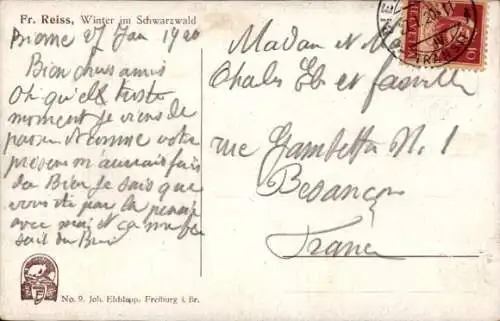 Fr. Reiss, Winter im Schwarzwald
27 Jan 1920
Bien chers amis
Oh qu'elle triste
moment je viens de
passer comme votre
présence m'aurais fais
du Bien je sais que
vous êtes par la pensée
avec moi et ça me
fait du Bien
Madame et M
Charles et famille
rue Gambetta N. 1
Besançon
France
No. 9. Joh. Elchlepp, Freiburg i. Br.